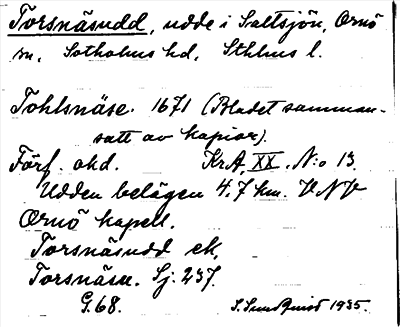 Torsnäsudd, udde i Saltsjön, Ornö
sn, Sotholms hd, Sthlms l.
Tohlsnäse. 1671 (Bladet samman-
satt av kopior).
Förf. okd. Kr.A. XX. N:o 13.
Udden belägen 4,7 km. VNV
Ornö kapell.
Torsnäsudd ek,
Torsnäsu. Sj. 237.
G. 68. S. Sundquist 1935.